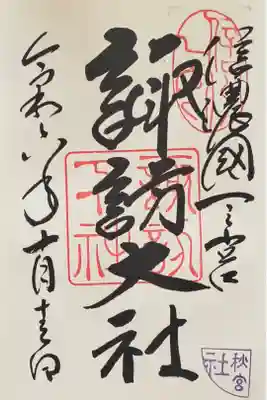 信濃國一之宮
諏訪大社
秋宮
社
令和六年十月十五日